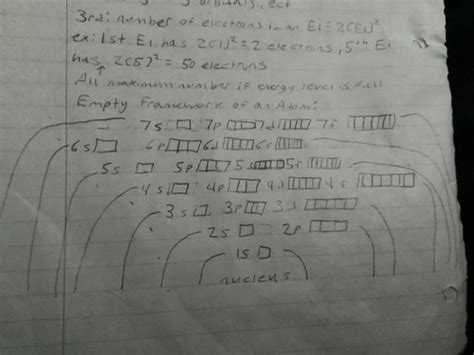 orbitals, ect
3rd: number of electrons in an E1 = 2(E1)²
ex: 1st E1 has 2(1)² = 2 electrons, 5th E1
has 2(5)² = 50 electrons
All maximum number if energy level is full
Empty Framework of an Atom:
7s 7p 7d 7f
6s 6p 6d 6f
5s 5p 5d 5f
4s 4p 4d 4f
3s 3p 3d
2s 2p
1s
nucleus